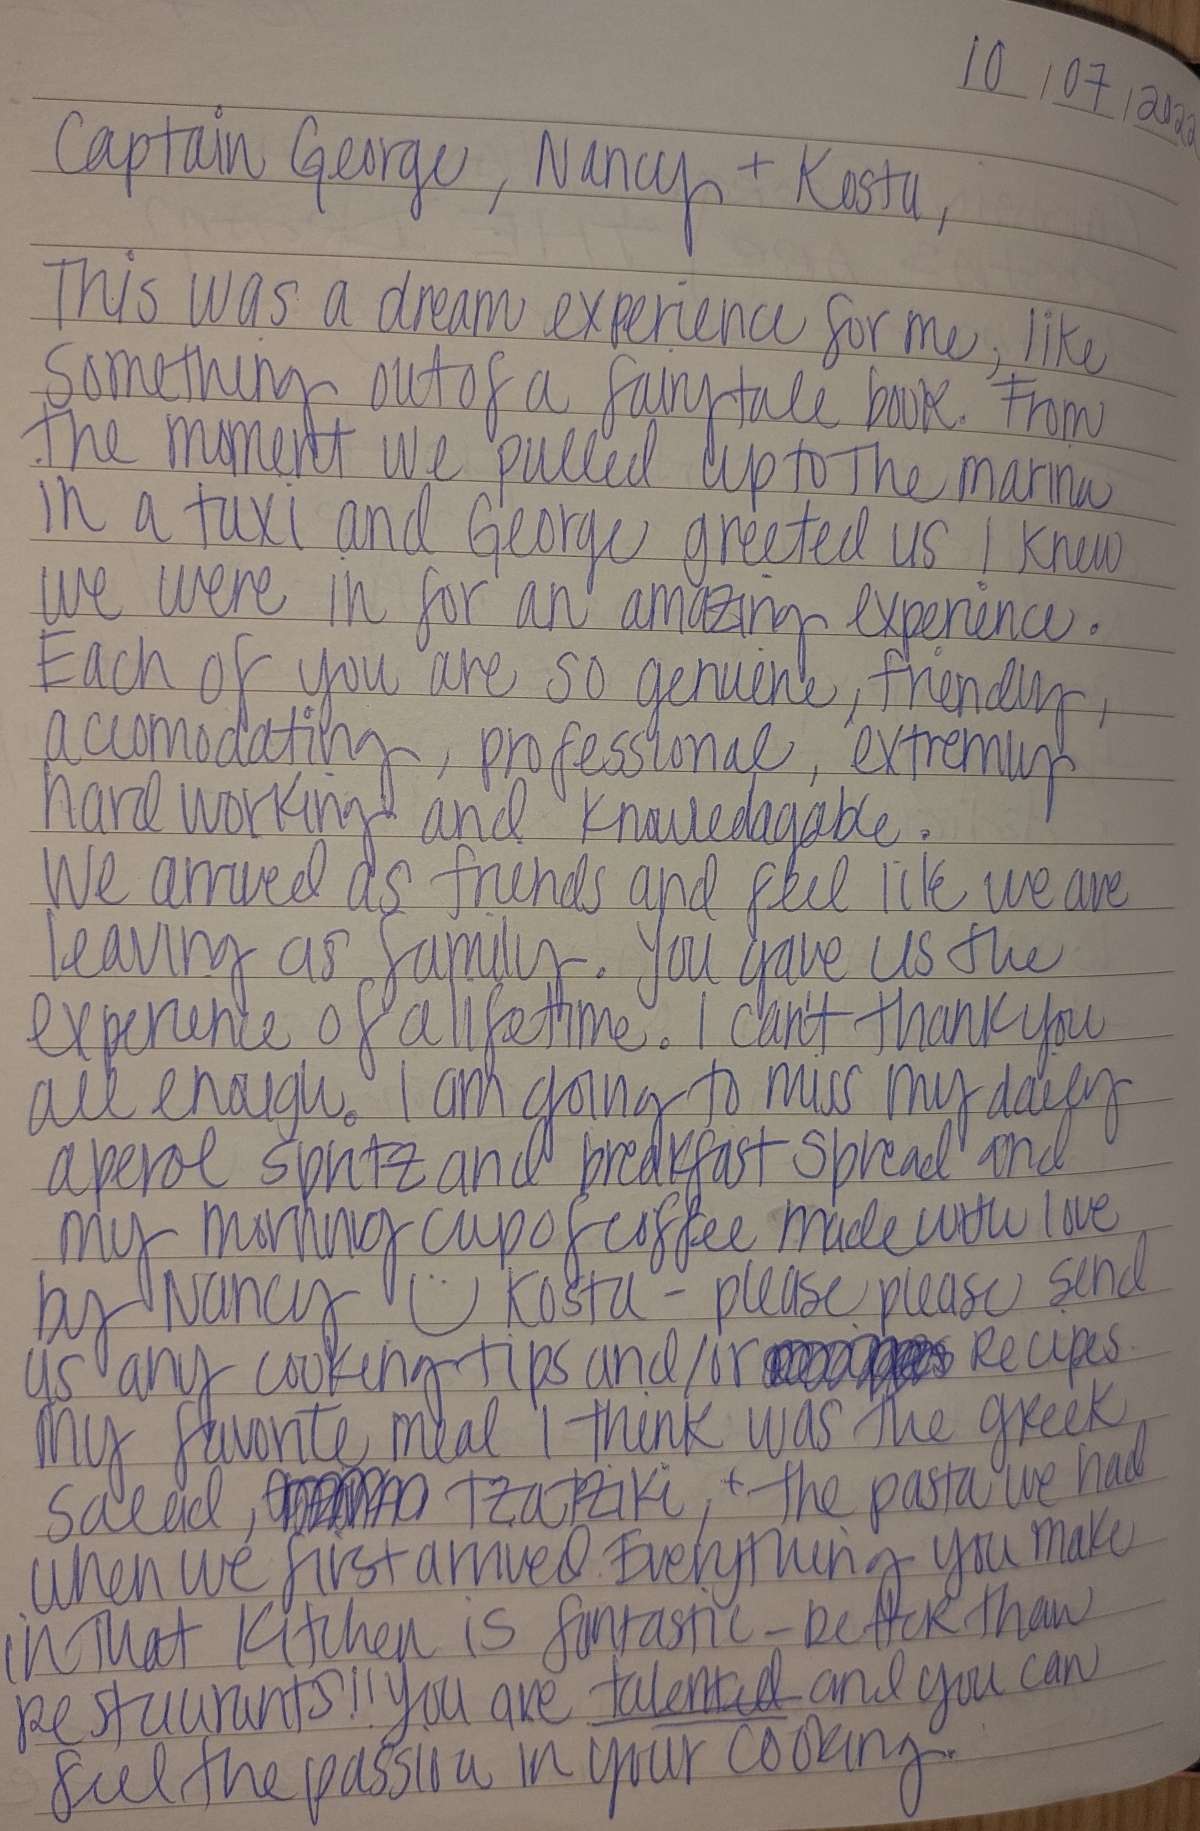 10/07/2022
Captain George, Nancy + Kosta,
This was a dream experience for me, like
something out of a fairytale book. From
the moment we pulled up to the marina
in a taxi and George greeted us I knew
we were in for an amazing experience.
Each of you are so genuine, friendly,
accomodating, professional, extremly
hard working and knowledagable.
We arrived as friends and feel like we are
leaving as family. You gave us the
experience of a lifetime. I can't thank you
all enough. I am going to miss my daily
aperol spritz and breakfast spread and
my morning cup of coffee made with love
by Nancy Kosta - please please send
us any cooking tips and/or Recipes.
My favorite meal I think was the greek
salad, Tzatziki, + the pasta we had
when we first arrived. Everything you make
in that kitchen is fantastic - better than
restaurants!! You are talented and you can
feel the passion in your cooking.